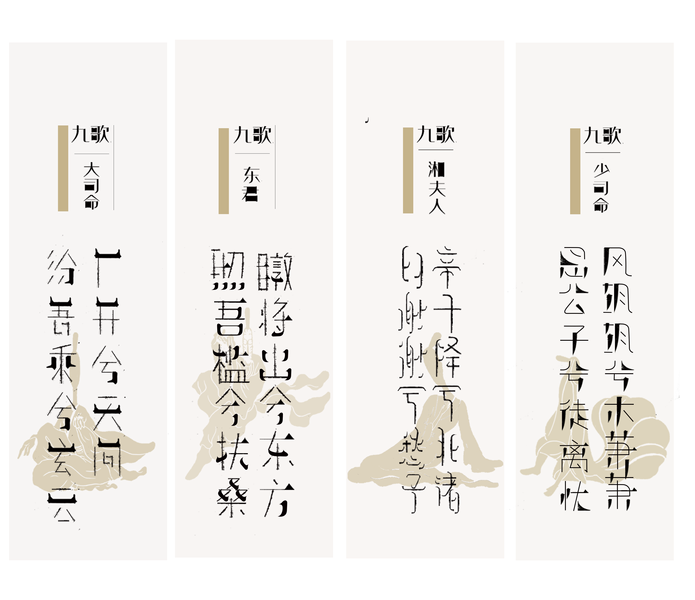 九歌
大司命
广开兮天门
纷吾乘兮玄云
九歌
东君
暾将出兮东方
照吾槛兮扶桑
九歌
湘夫人
帝子降兮北渚
目眇眇兮愁予
九歌
少司命
风飒飒兮木萧萧
思公子兮徒离忧